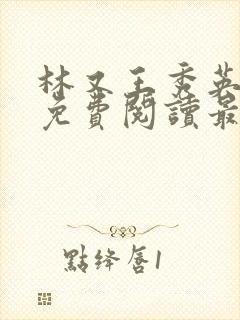 林又王秀英
免費閱讀最
點絳唇1